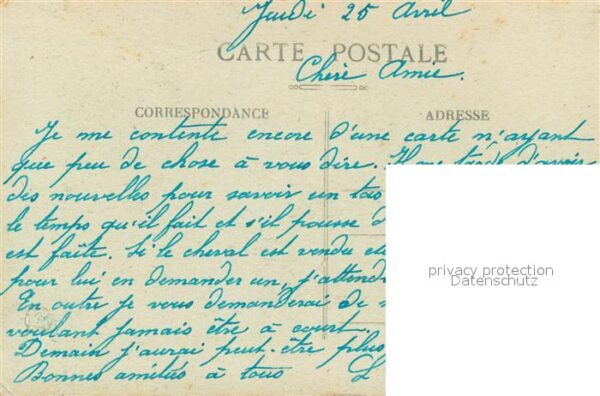 Jeudi 25 Avril
CARTE POSTALE
Chère Amie.
CORRESPONDANCE
ADRESSE
Je me contente encore d'une carte n'ayant
que peu de chose à vous dire. Il me tarde d'avoir
des nouvelles pour savoir un tas
le temps qu'il fait et s'il pousse d
est faite. Si le cheval est vendu
pour lui en demander un, j'attend
En outre je vous demanderai de
voulant jamais être à court.
Demain j'aurai peut-être plus
Bonnes amitiés à tous L
privacy protection
Datenschutz